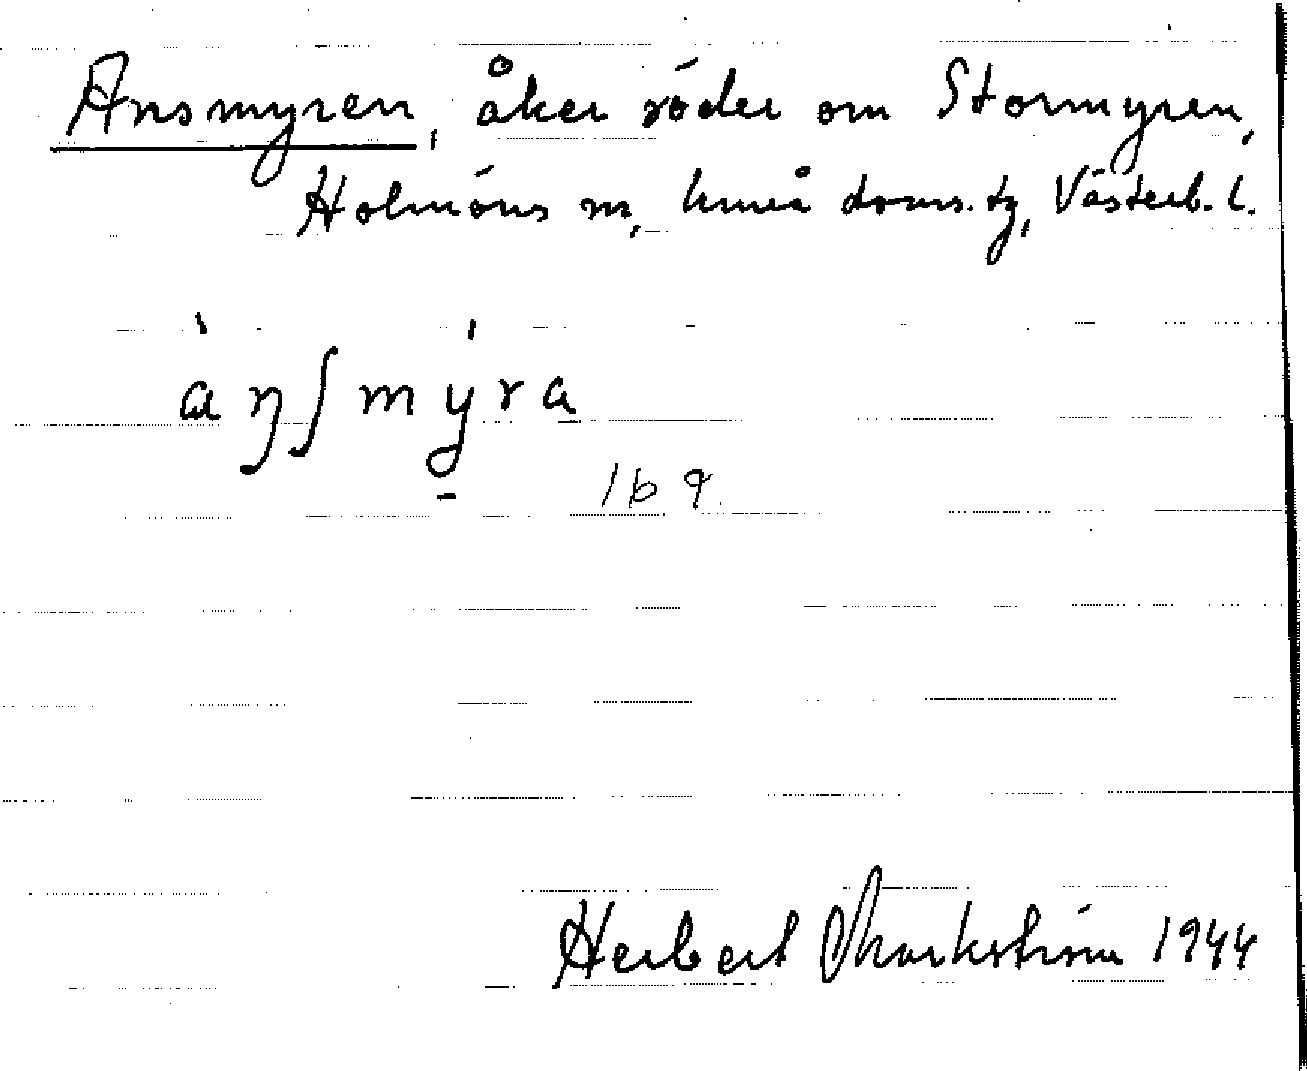 Ansmyren, åker söder om Stormyren,
Holmöns sn, Umeå doms. tg, Västerb. l.
àŋʃmýra
169.
Herbert Markström 1944